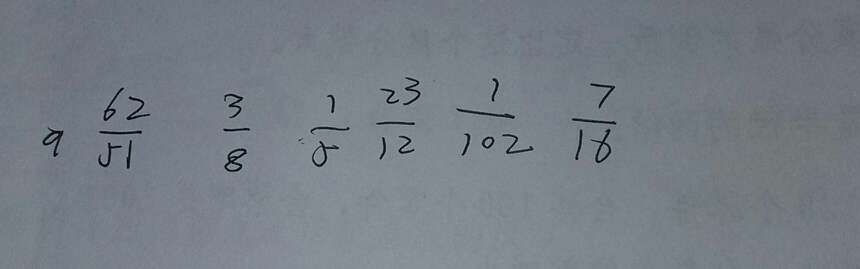 9 62/51 3/8 1/5 23/12 1/102 7/16